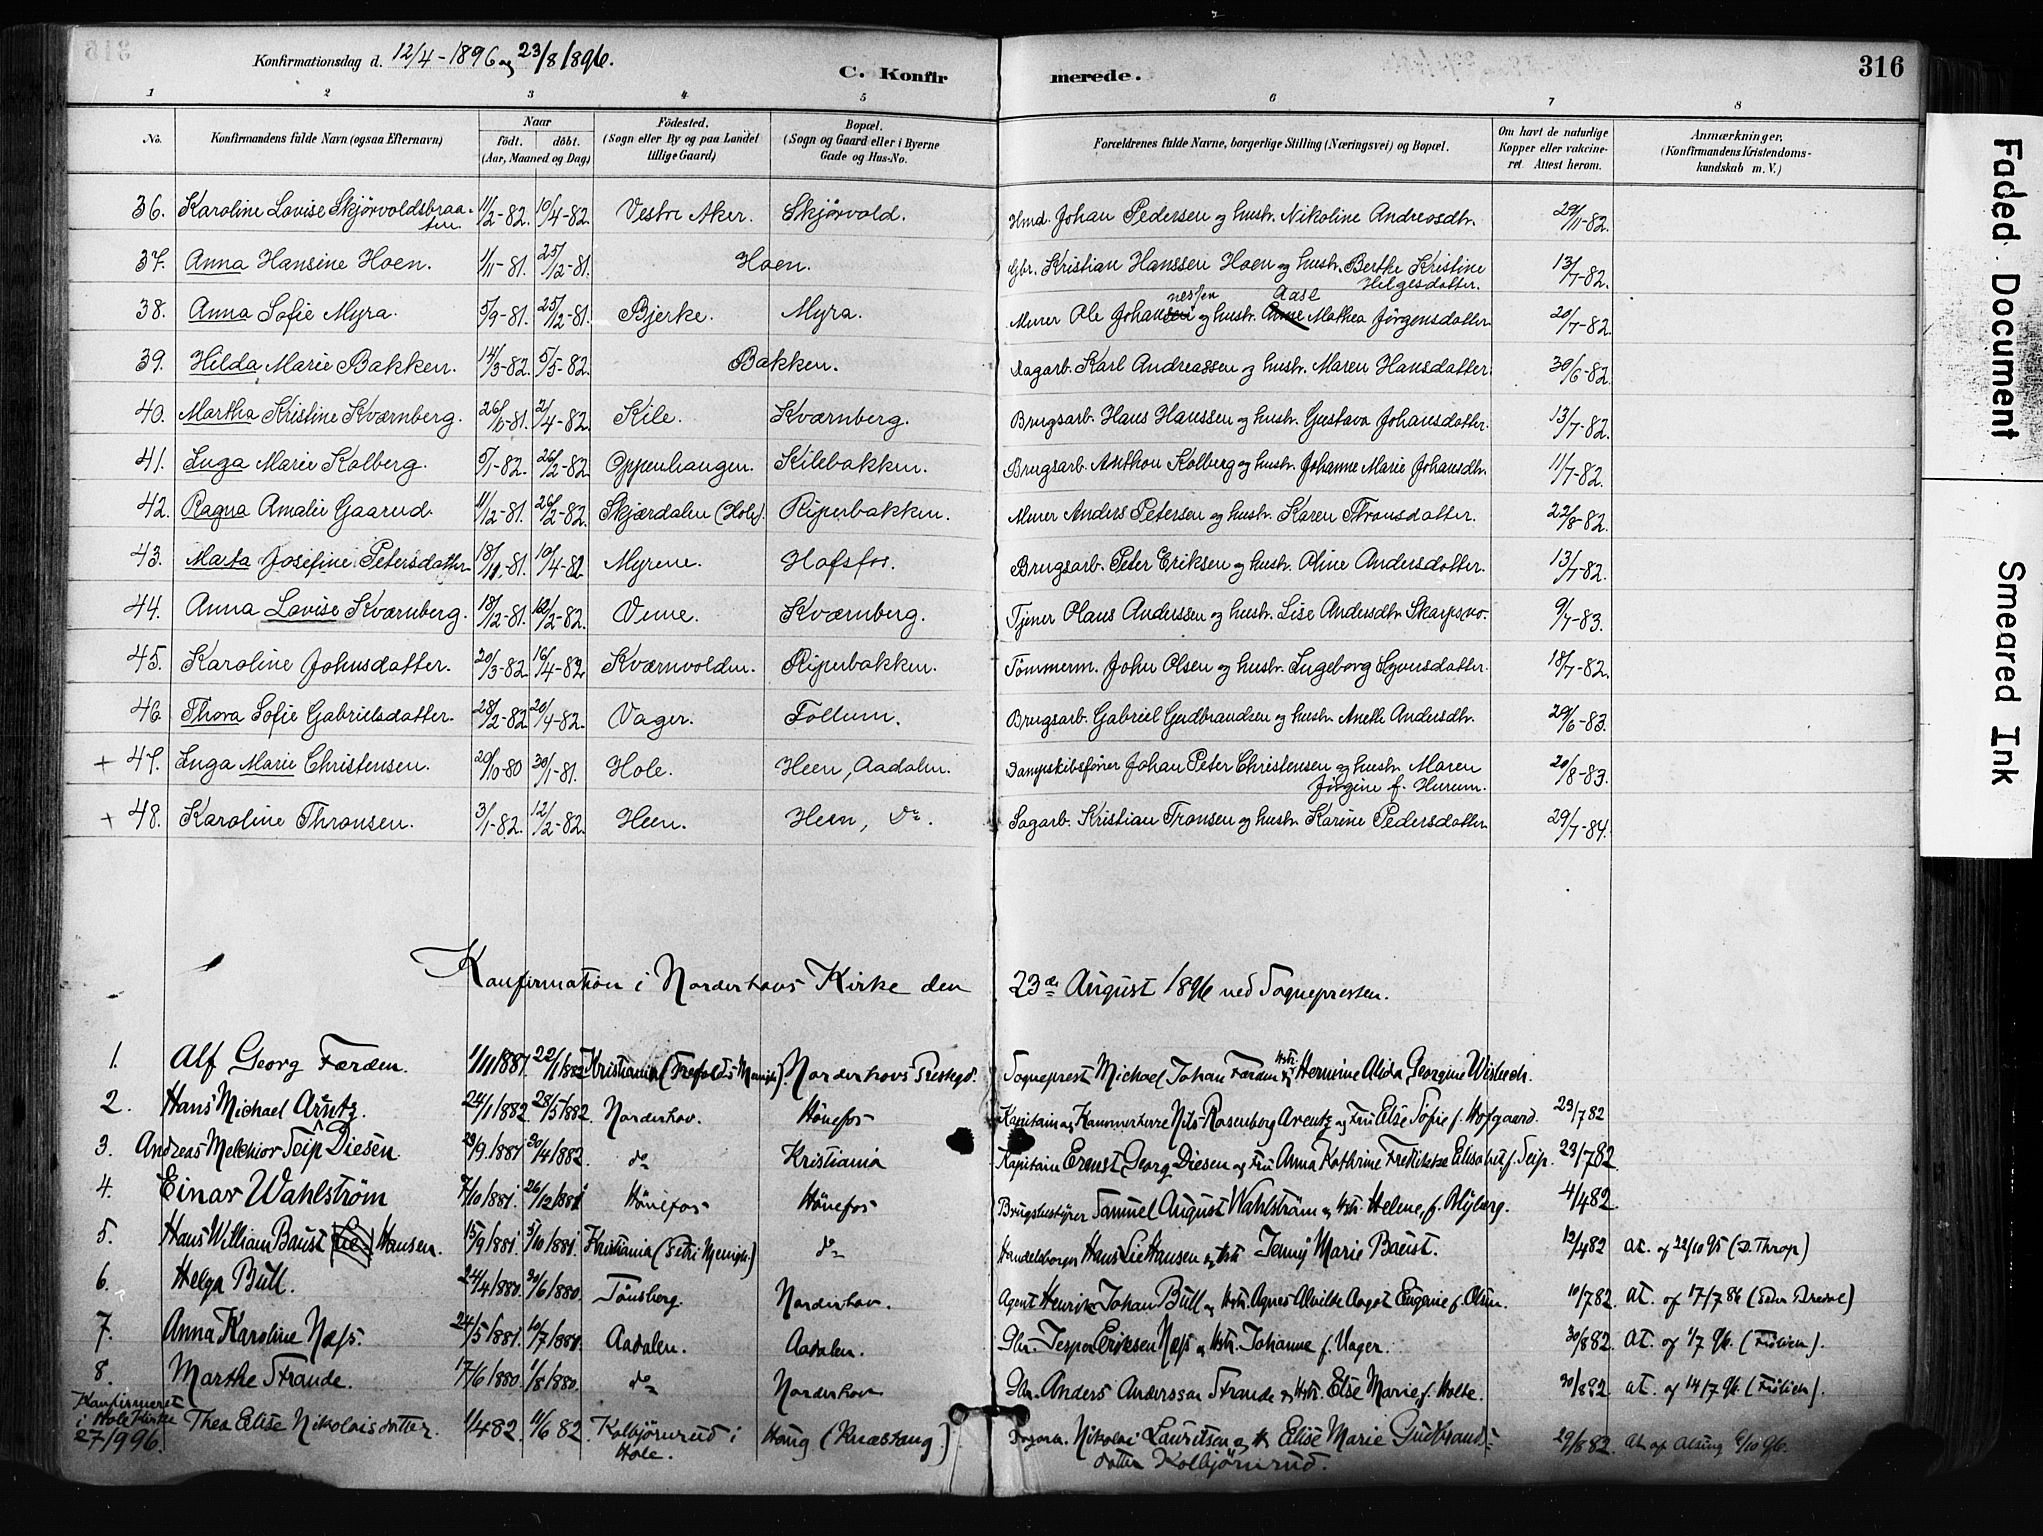 316
Konfirmationsdag d. 12/4-1896 og 23/8 1896.
C. Konfirmerede.
1 2 3 4 5 6 7 8
No. Konfirmandens fulde Navn (ogsaa Efternavn) Naar født. døbt. (Aar, Maaned og Dag) Fødested. (Sogn eller By og paa Landet tillige Gaard) Bopæl. (Sogn og Gaard eller i Byerne Gade og Hus-No. Forældrenes fulde Navne, borgerlige Stilling (Næringsvei) og Bopæl. Om havt de naturlige Kopper eller vakcineret. Attest herom. Anmærkninger. (Konfirmandens Kristendomskundskab m. V.)
36. Karoline Lovise Skjørvoldsbraaten. 11/2-82. 10/4-82. Vestre Aker. Skjørvold. Hmd. Johan Pedersen og hustr. Nikoline Andreasdtr. 29/11-82.
37. Anna Hansine Hoen. 1/11-81. 25/12-81. Hoen. Gbr. Kristian Hanssen Hoen og hustr. Berthe Kristine Helgesdatter. 13/7-82.
38. Anna Sofie Myra. 5/9-81. 25/12-81. Bjerke. Myra. Murer Ole Johannessen og hustr. Aase Mathea Jørgensdatter. 20/7-82.
39. Hilda Marie Bakken. 14/3-82. 5/5-82. Bakken. Dagarb. Karl Andreassen og hustr. Maren Hansdatter. 30/6-82.
40. Martha Kristine Kværnberg. 26/6-81. 2/4-82. Kile. Kværnberg. Brugsarb. Hans Hanssen og hustr. Gustava Johansdatter. 13/7-82.
41. Inga Marie Kolberg. 5/1-82. 26/2-82. Oppenhaugen. Kilebakken. Brugsarb. Anthon Kolberg og hustr. Johanne Marie Johansdtr. 11/7-82.
42. Ragna Amalie Gaarud. 11/12-81. 26/2-82. Skjærdalen (Hole). Riperbakken. Murer Anders Petersen og hustr. Karen Thronsdatter. 22/8-82.
43. Marta Josefine Petersdatter 18/11-81. 10/4-82 Myrene. Hofsfos. Brugsarb. Peter Eriksen og hustr. Oline Andersdatter. 13/7-82.
44. Anna Lovise Kværnberg. 18/12-81. 12/2-82. Vene. Kværnberg. Tjener Olaus Anderssen og hustr. Lise Andersdtr. Skarpsno. 9/7-83.
45. Karoline Johnsdatter. 20/3-82. 16/4-82 Kværnvolden. Riperbakken. Tømmerm. John Olsen og hustr. Ingeborg Syversdatter. 18/7-82.
46. Thora Sofie Gabrielsdatter. 28/2-82 20/4-82. Vager. Follum. Brugsarb. Gabriel Gudbrandsen og hustr. Anette Andersdtr. 29/6-83.
+ 47. Inga Marie Christensen. 20/10-80 30/1-81. Hole. Heen, Aadalen. Dampskibsfører Johan Peter Christensen og hustr. Maren Jørgine f. Hurum. 20/8-83.
+ 48. Karoline Thronsen. 3/1-82. 12/2-82. Heen. Heen, do. Sagarb. Kristian Tronsen og hustr. Karine Pedersdatter. 29/7-84.
Konfirmation i Norderhovs Kirke den 23de August 1896 ved Sognepresten.
1. Alf Georg Færden. 1/11 1881. 22/1 1882 Kristiania (Trefold. Menigh.) Norderhovs Prestegd. Sogneprest Michael Johan Færden og Hstr. Hermine Alida Georgine Wisbech.
2. Hans Michael Arntz. 24/1 1882. 28/5 1882. Norderhov. Hönefos Kapitain og Kammerherre Nils Rosenberg Arentz og Fru Elise Sofie f. Hofgaard. 23/7 82
3. Andreas Melchior Seip Diesen. 29/9. 1881 30/4 1882. do Kristiania Kapitain Ernst Georg Diesen og Fru Anna Kathrine Fredrikke Elisabet f. Seip. 23/7 82.
4. Einar Wahlström 7/10 1881. 26/12 1881 Hönefos Hönefos Brugsbestyrer Samuel August Wahlström og Hstr. Helene f. Myberg. 4/4 82.
5. Hans William Baust Hansen. 15/9 1881. 5/10 1881. Kristiania (Petri Menigh.) do Handelsborger Hans Lie Hansen og Hstr. Jenny Marie Baust. 12/4 82 at. af 22/10 95 (D. Throp)
6. Helga Bull. 24/4 1880. 30/6 1880. Tönsberg. Norderhov. Agent Henrik Johan Bull og Hstr. Agnes Alvilde Aagot Eugenie f. Olsen. 10/7 82. at. af 17/7 86
7. Anna Karoline Næss. 24/5 1881. 10/7 1881. Aadalen. Aadalen. Gbr. Jesper Eriksen Næss og Hstr. Johanne f. Vager. 30/8 82. at. af 1/7 96. (Frölich).
8. Marthe Strande. 17/6 1880. 1/8 1880. do Norderhov Gbr. Anders Anderssen Strande og Hstr. Elise Marie f. Holte. 30/8 82. at. af 14/7 96. (Frölich).
Konfirmeret i Hole Kirke 27/9 96. Thea Elise Nikolaisdatter. 1/4 82. 11/6 82. Kolbjörnrud i Hole. Haug (Knæstang.) Nikolai Lauritsen og H. Elise Marie Gudbrandsdatter Kolbjörnrud. 29/8 82. at. af Alsing 6/10 96.
Faded Document
Smeared Ink